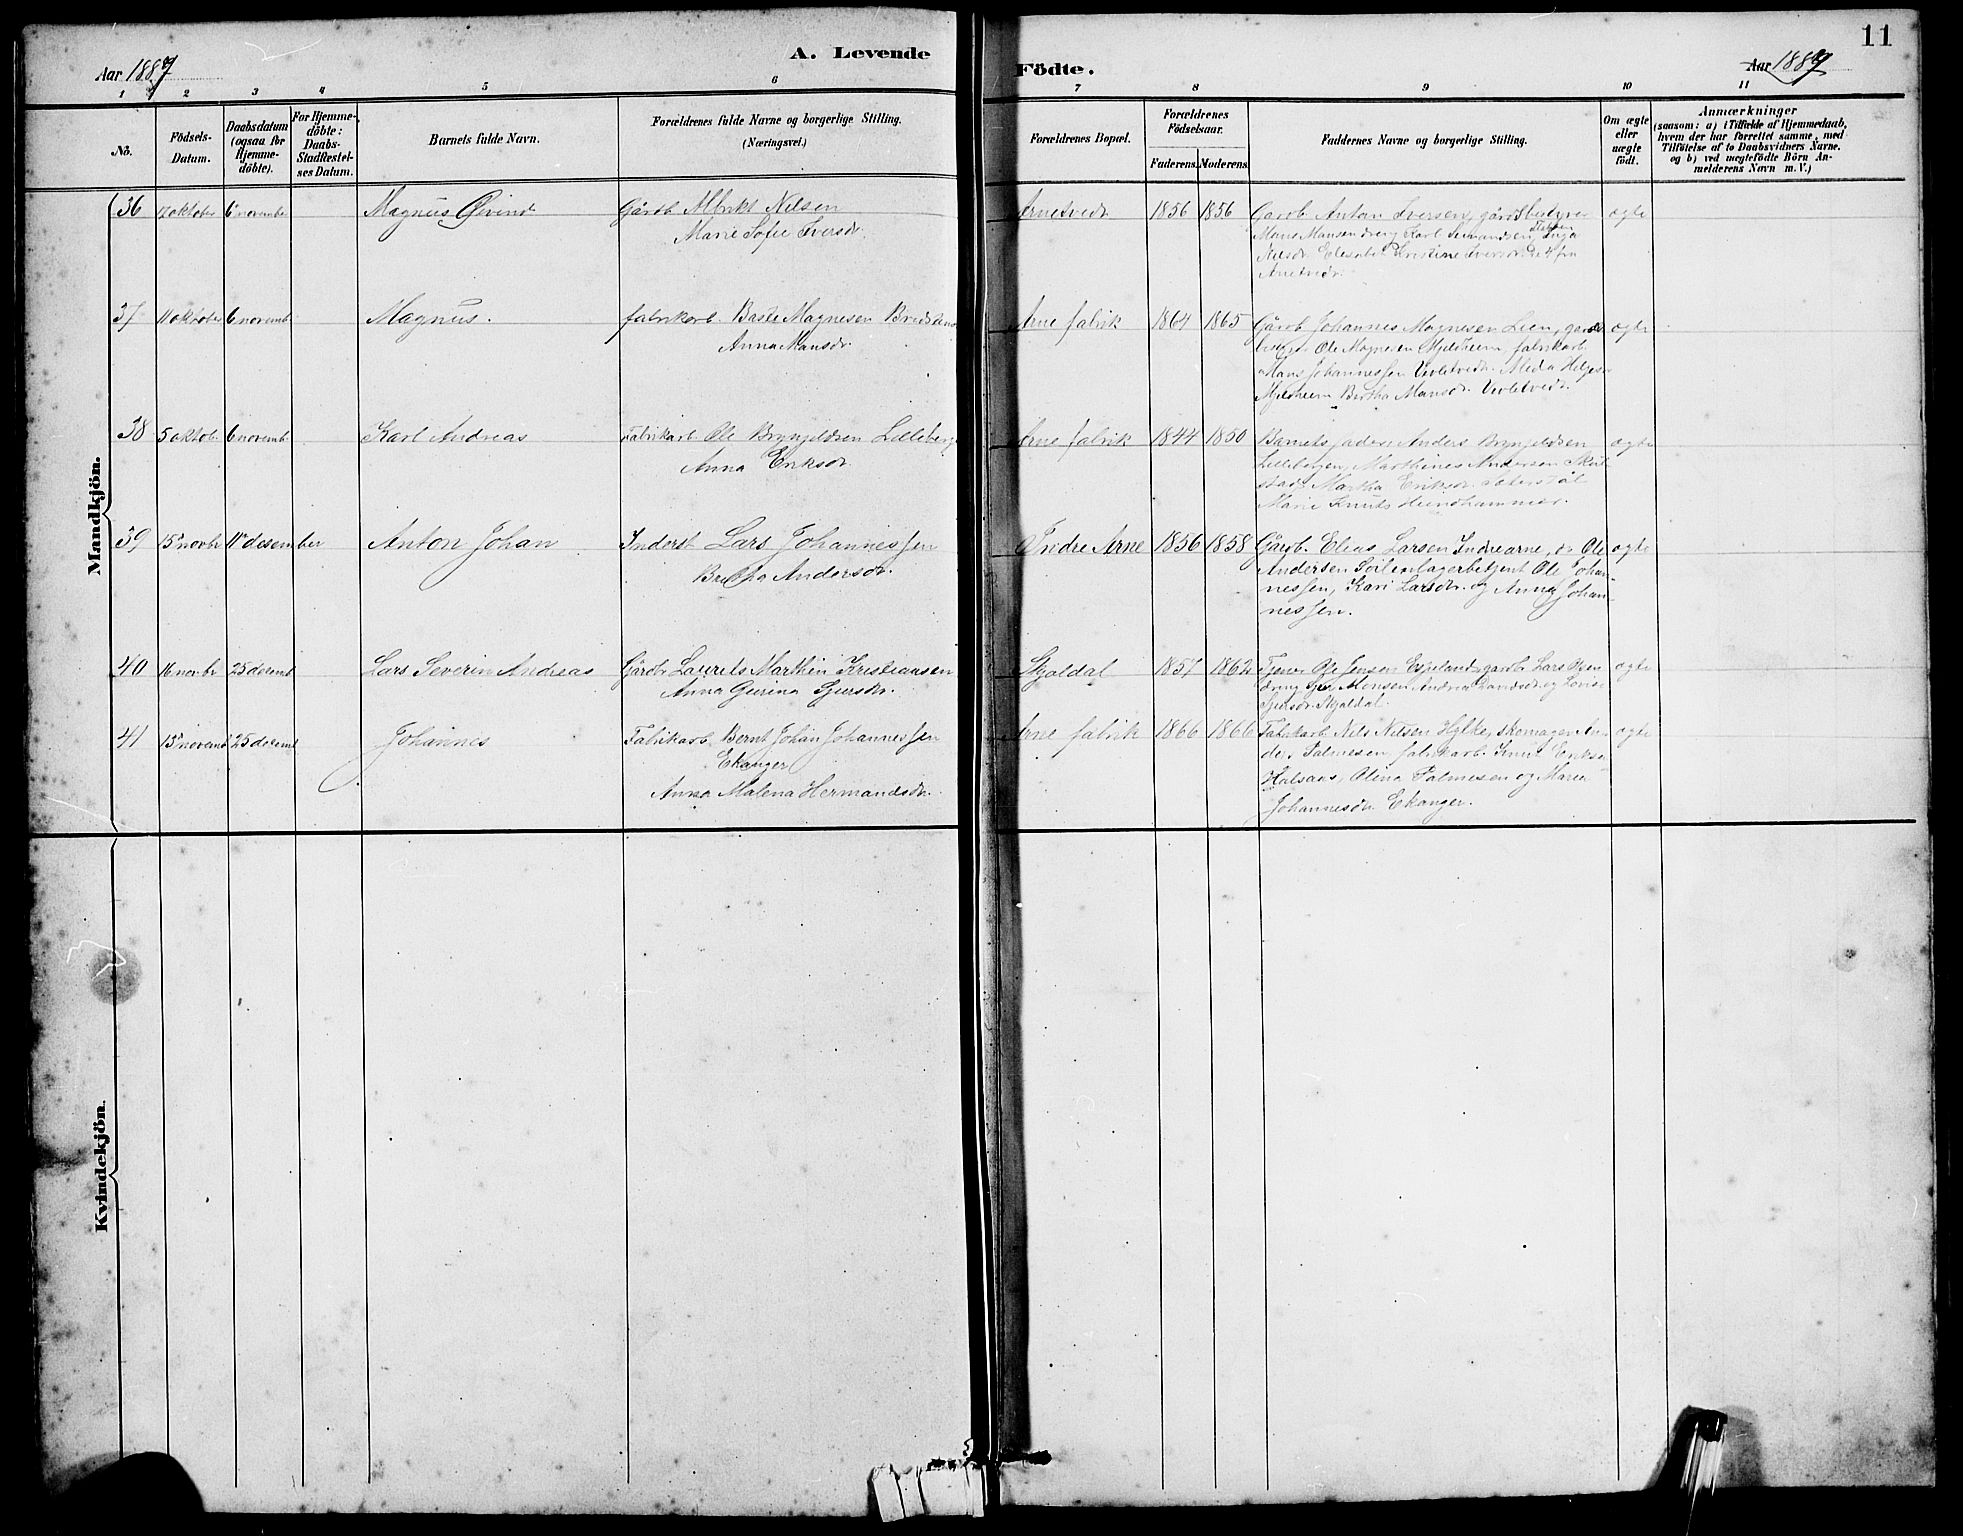 A. Levende
Födte.
11
Aar 1887
Aar 1887
1 2 3 4 5 6 7 8 9 10 11
No.
Födsels-
Datum.
Daabsdatum
(ogsaa for
Hjemme-
döbte).
For Hjemme-
döbte:
Daabs-
Stadfæstel-
ses Datum.
Barnets fulde Navn.
Forældrenes fulde Navne og borgerlige Stilling.
(Næringsvei.)
Forældrenes Bopæl.
Forældrenes
Födselsaar.
Faderens. Moderens.
Faddernes Navne og borgerlige Stilling.
Om ægte
eller
uægte
födt.
Anmærkninger
(saasom: a) i Tilfælde af Hjemmedaab,
hvem der har forrettet samme, med
Tilföielse af to Daabsvidners Navne.
og b) ved uægtefödte Börn An-
melderens Navn m. V.)
Mandkjön.
36 oktober 6 november Magnus Øivind Gårdb Albrikt Nilsen
Marie Sofie Iversdr.
Arnetvedt 1856 1856 Gardb Anton Iversen, gårdbestyrer
Mons Monsen dreng Karl
Nilsdr. Elisabet Kristine Iversdr.
Arnetvedt.
ægte
37 11 oktober 6 novemb Magnus. fabrikarb. Baste Magnesen
Anna Mansdr.
Arne fabrik 1864 1865 Gårdb Johannes Magnesen Lien, gard
Ole Magnesen Mjeldheim fabrikarb.
Hans Johannessen Alida Helges
Mjeldheim Bertha Mansdr.
ægte
38 5 oktob. 6 novemb Karl Andreas Fabrikarb Ole Brynjeldsen Lilleberg
Anna Eriksdr.
Arne fabrik 1844 1850 Barnets fader, Anders Brynjeldsen
Lillebergen, Marthines Andersen
Martha Eriksdr.
Marie Knuts
ægte
39 15 novbr 11 desember Anton Johan Inderst Lars Johannessen
Brita Andersdr.
Indre Arne 1856 1858 Gårdb. Elias Larsen Indrearne, do Ole
Andersen lagerbetjent Ole Johan-
nessen, Kari Larsdr. og Anna Johan-
nessen.
ægte
40 16 novbr 25 decemb Lars Severin Andreas Gårdbr Laurits Marthin Kristiansen
Anna Gurina Sjursdr.
Skjoldal 1857 1862 Tjener Ole Jensen Espeland, gardb Lars Olsen
dreng Monsen Andrea Davidsdr og Lovise
Sjursdr. Skjoldal.
ægte
41 15 novemb 25 decemb Johannes Fabrikarb. Bernt Johan Johannessen
Ekanger
Anna Malena Hermandsdr.
Arne fabrik 1866 1866 Fabrikarb Nils Nilsen Hylke, skomager An-
ders Palmesen, fabrikarb. Knut Eriksen
Halsaas, Olina Palmesen og Maria
Johannesdr. Ekanger.
ægte
Kvindekjön.